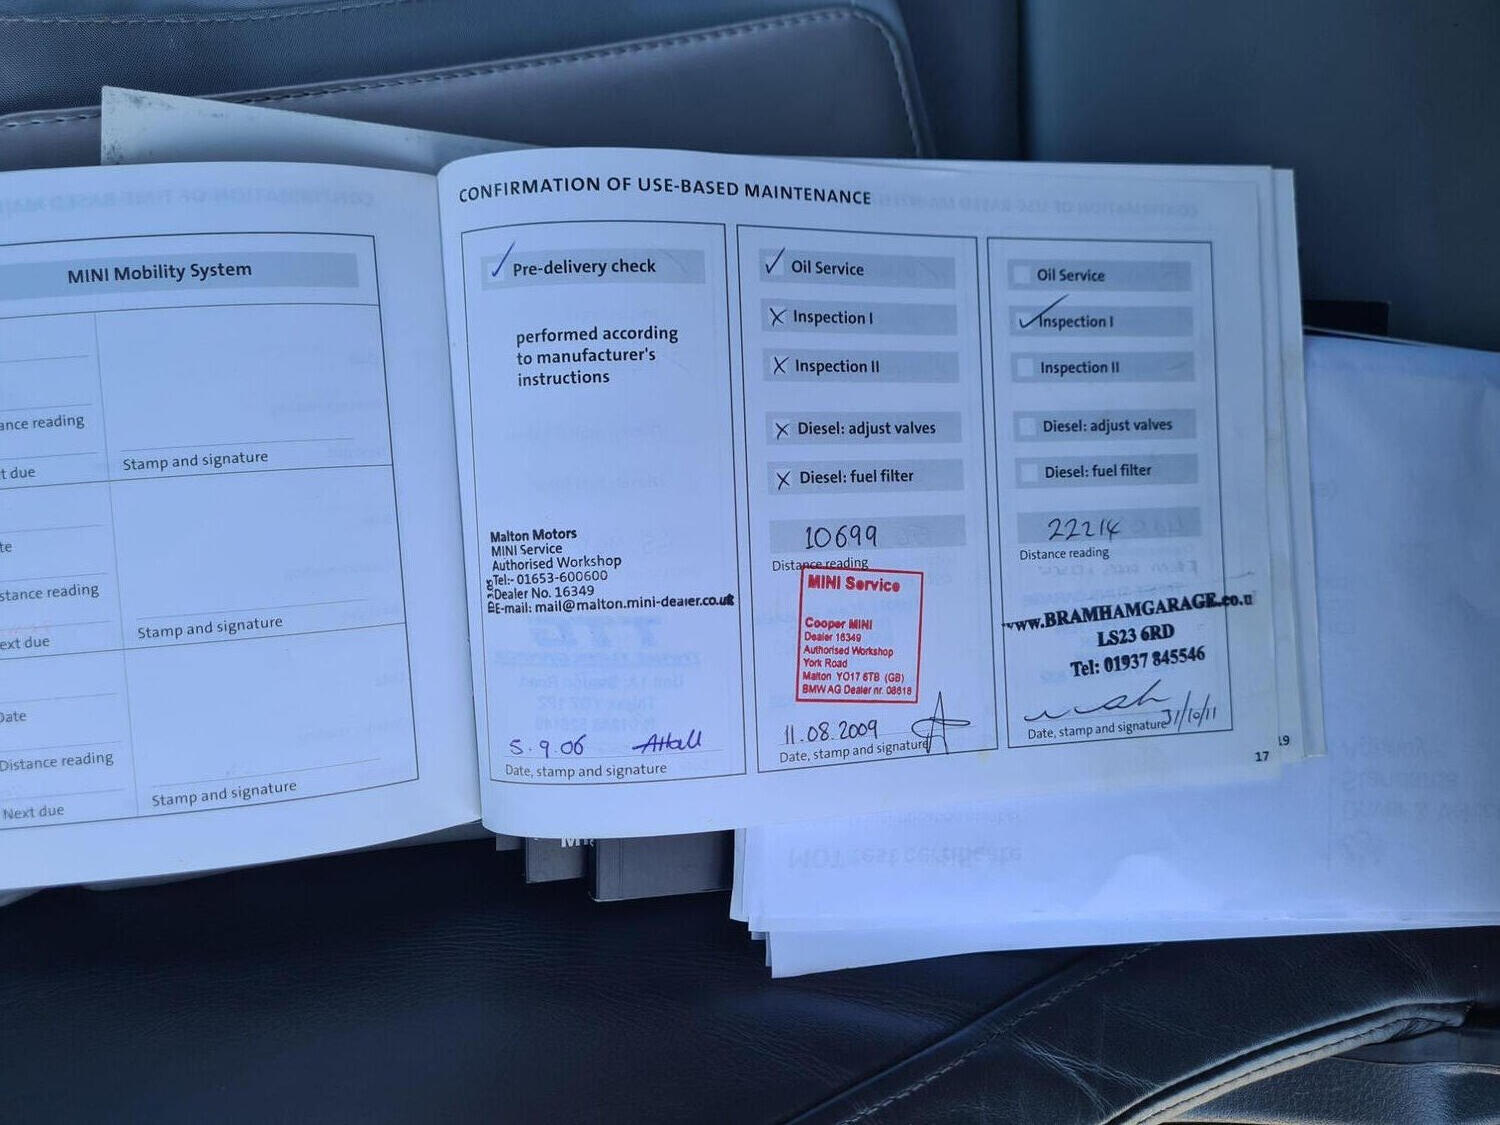 MINI Mobility System
ance reading
t due
Stamp and signature
te
stance reading
ext due
Stamp and signature
Date
Distance reading
Next due
Stamp and signature
CONFIRMATION OF USE-BASED MAINTENANCE
Pre-delivery check
performed according
to manufacturer's
instructions
Malton Motors
MINI Service
Authorised Workshop
Tel:- 01653-600600
Dealer No. 16349
E-mail: mail@malton.mini-dealer.co.uk
5.9.06 AHall
Date, stamp and signature
Oil Service
Inspection I
Inspection II
Diesel: adjust valves
Diesel: fuel filter
10699
Distance reading
MINI Service
Cooper MINI
Dealer 16349
Authorised Workshop
York Road
Malton YO17 6TB (GB)
BMW AG Dealer nr. 08618
11.08.2009
Date, stamp and signature
Oil Service
Inspection I
Inspection II
Diesel: adjust valves
Diesel: fuel filter
22214
Distance reading
www.BRAMHAMGARAGE.co.u
LS23 6RD
Tel: 01937 845546
31/10/11
Date, stamp and signature
17
19
MOT test certificate